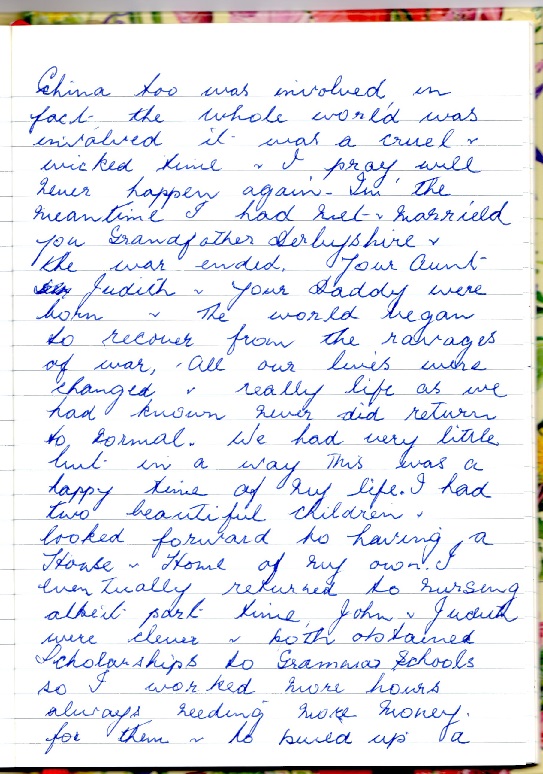 China too was involved in
fact the whole world was
involved it was a cruel &
wicked time & I pray will
never happen again - In the
meantime I had met & married
you Grandfather Derbyshire &
the war ended. Your Aunt
Judith & Your Daddy were
born & the world began
to recover from the ravages
of war, All our lives were
changed & really life as we
had known never did return
to normal. We had very little
but in a way This was a
happy time of my life. I had
two beautiful children &
looked forward to having a
House & Home of my own. I
eventually returned to nursing
albeit part time, John & Judith
were clever & both obtained
Scholarships to Grammar Schools
so I worked more hours
always needing more money.
for them & to build up a